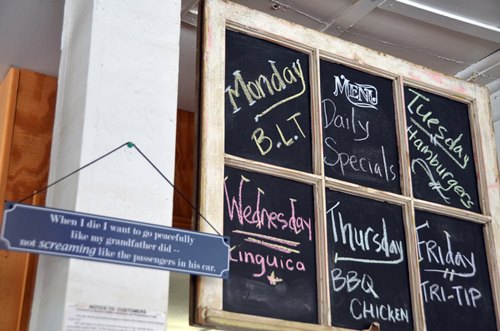 Monday
B.L.T
MENU
Daily
Specials
Tuesday
Hamburgers
Wednesday
Linguica
Thursday
BBQ
CHICKEN
Friday
TRI-TIP
When I die I want to go peacefully
like my grandfather did --
not screaming like the passengers in his car.
NOTICE TO CUSTOMERS